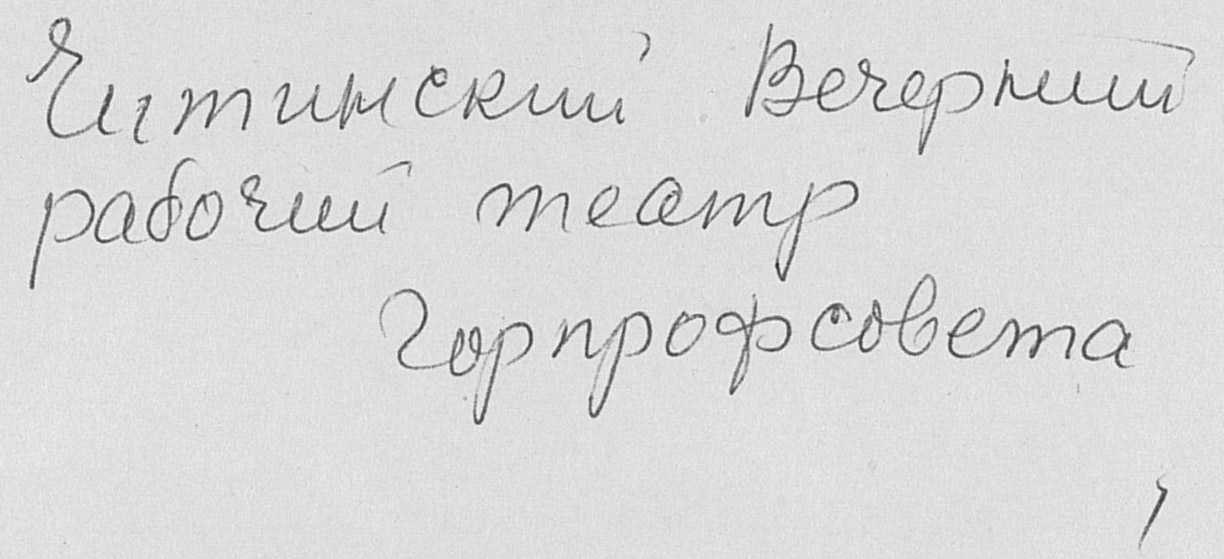 Читинский Вечерний
рабочий театр
Горпрофсовета